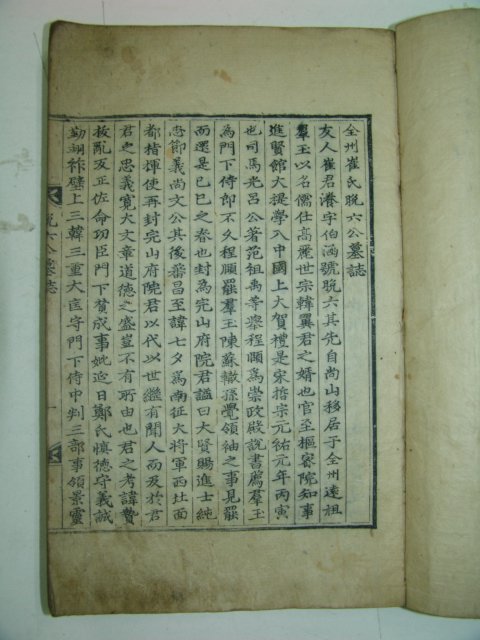 全州崔氏晩六公墓誌
友人崔君瀁字伯涵號晩六其先自尚山移居于全州遠祖
羣玉以名儒仕高麗世宗韓翼君之婿也官至樞密院知事
進賢館大提學入中國上大賀禮是宋哲宗元祐元年丙寅
也司馬光呂公著范祖禹等擧程頤爲崇政殿說書薦羣玉
爲門下侍郎不久程頤羣玉陳蘇轍孫覺領袖之事見罷
而還是己巳之春也封爲完山府院君謚曰大賢賜進士純
忠節義尚文公其後蕃昌至諱七夕爲南征大將軍西北面
都指揮使再封完山府院君以代以世繼有聞人而及於君
君之忠義寬大文章道德之盛豈不有所由也君之考諱贇
抜亂反正佐命功臣門下贊成事妣延日鄭氏愼德守義誠
勤翊祚壁上三韓三重大匡守門下侍中判三部事領景靈
晩六公墓誌
一